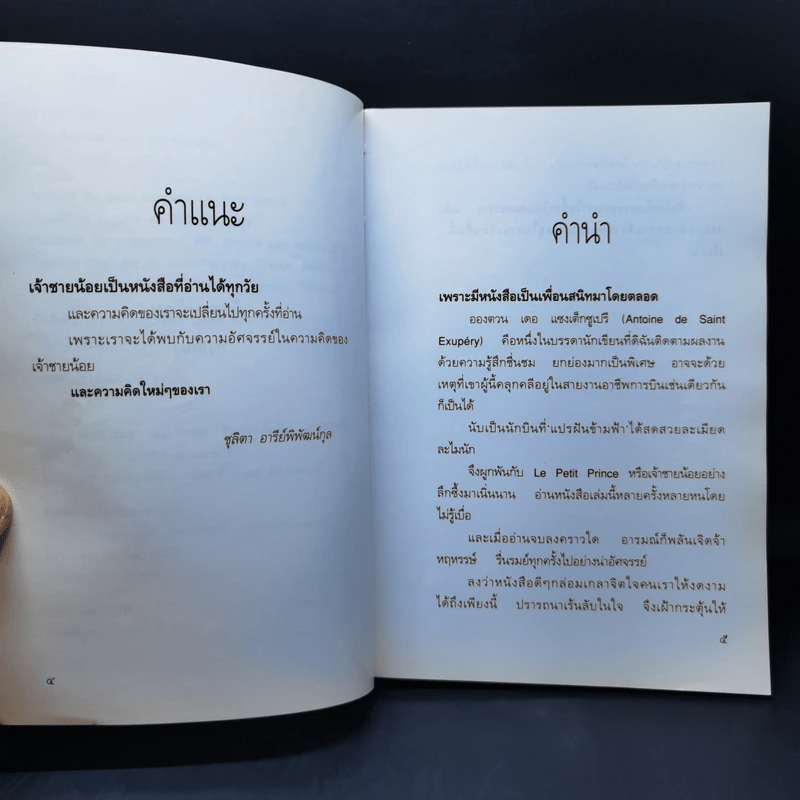 คำแนะ
เจ้าชายน้อยเป็นหนังสือที่อ่านได้ทุกวัย
และความคิดของเราจะเปลี่ยนไปทุกครั้งที่อ่าน
เพราะเราจะได้พบกับความอัศจรรย์ในความคิดของ
เจ้าชายน้อย
และความคิดใหม่ๆของเรา
ชุลิตา อารีย์พิพัฒน์กุล
๔
คำนำ
เพราะมีหนังสือเป็นเพื่อนสนิทมาโดยตลอด
อองตวน เดอ แซงเต็กซูเปรี (Antoine de Saint
Exupéry) คือหนึ่งในบรรดานักเขียนที่ดิฉันติดตามผลงาน
ด้วยความรู้สึกชื่นชม ยกย่องมากเป็นพิเศษ อาจจะด้วย
เหตุที่เขาผู้นี้คลุกคลีอยู่ในสายงานอาชีพการบินเช่นเดียวกัน
ก็เป็นได้
นับเป็นนักบินที่'แปรฝันข้ามฟ้า'ได้สดสวยละเมียด
ละไมนัก
จึงผูกพันกับ Le Petit Prince หรือเจ้าชายน้อยอย่าง
ลึกซึ้งมาเนิ่นนาน อ่านหนังสือเล่มนี้หลายครั้งหลายหนโดย
ไม่รู้เบื่อ
และเมื่ออ่านจบลงคราวใด อารมณ์ก็พลันเจิดจ้า
หฤหรรษ์ รื่นรมย์ทุกครั้งไปอย่างน่าอัศจรรย์
ลงว่าหนังสือดีๆกล่อมเกลาจิตใจคนเราให้งดงาม
ได้ถึงเพียงนี้ ปรารถนาเร้นลับในใจ จึงเฝ้ากระตุ้นให้
๕